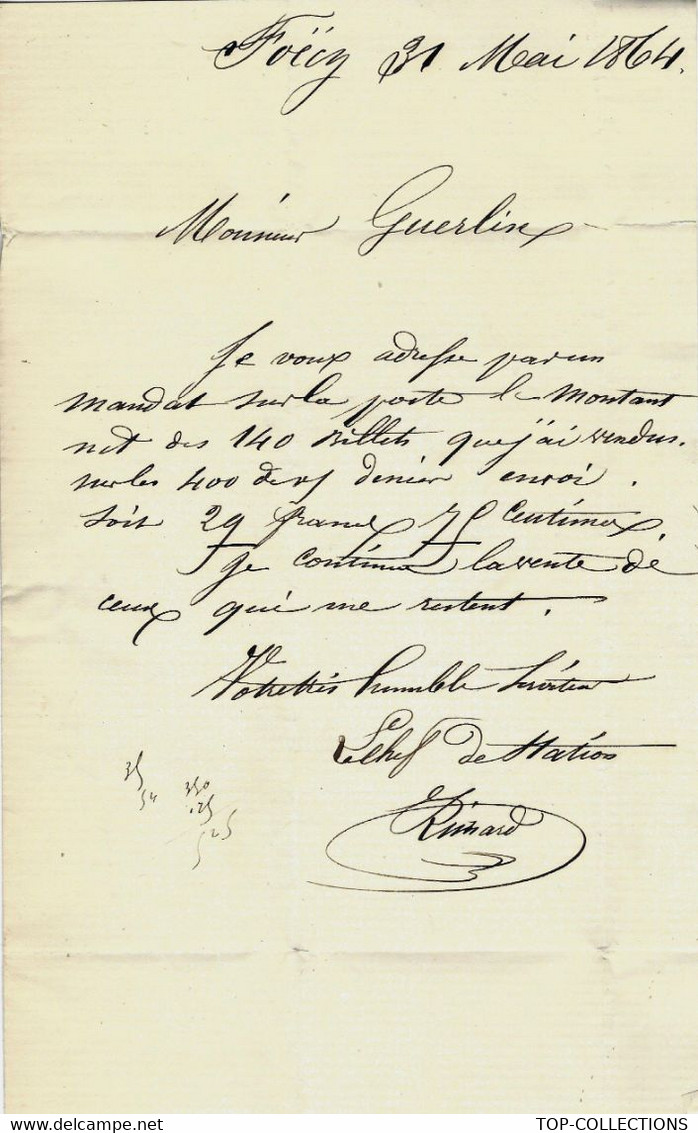 Foëcy 31 Mai 1864.
Monsieur Guerlin
Je vous adresse par un
mandat sur la poste le montant
net des 140 Billets que j'ai vendus.
sur les 400 de dernier envoi.
soit 29 francs 75 Centimes.
Je continue la vente de
ceux qui me restent.
Votre très humble Serviteur
Le Chef de Station
35
54
350
125
525
TOP-COLLECTIONS